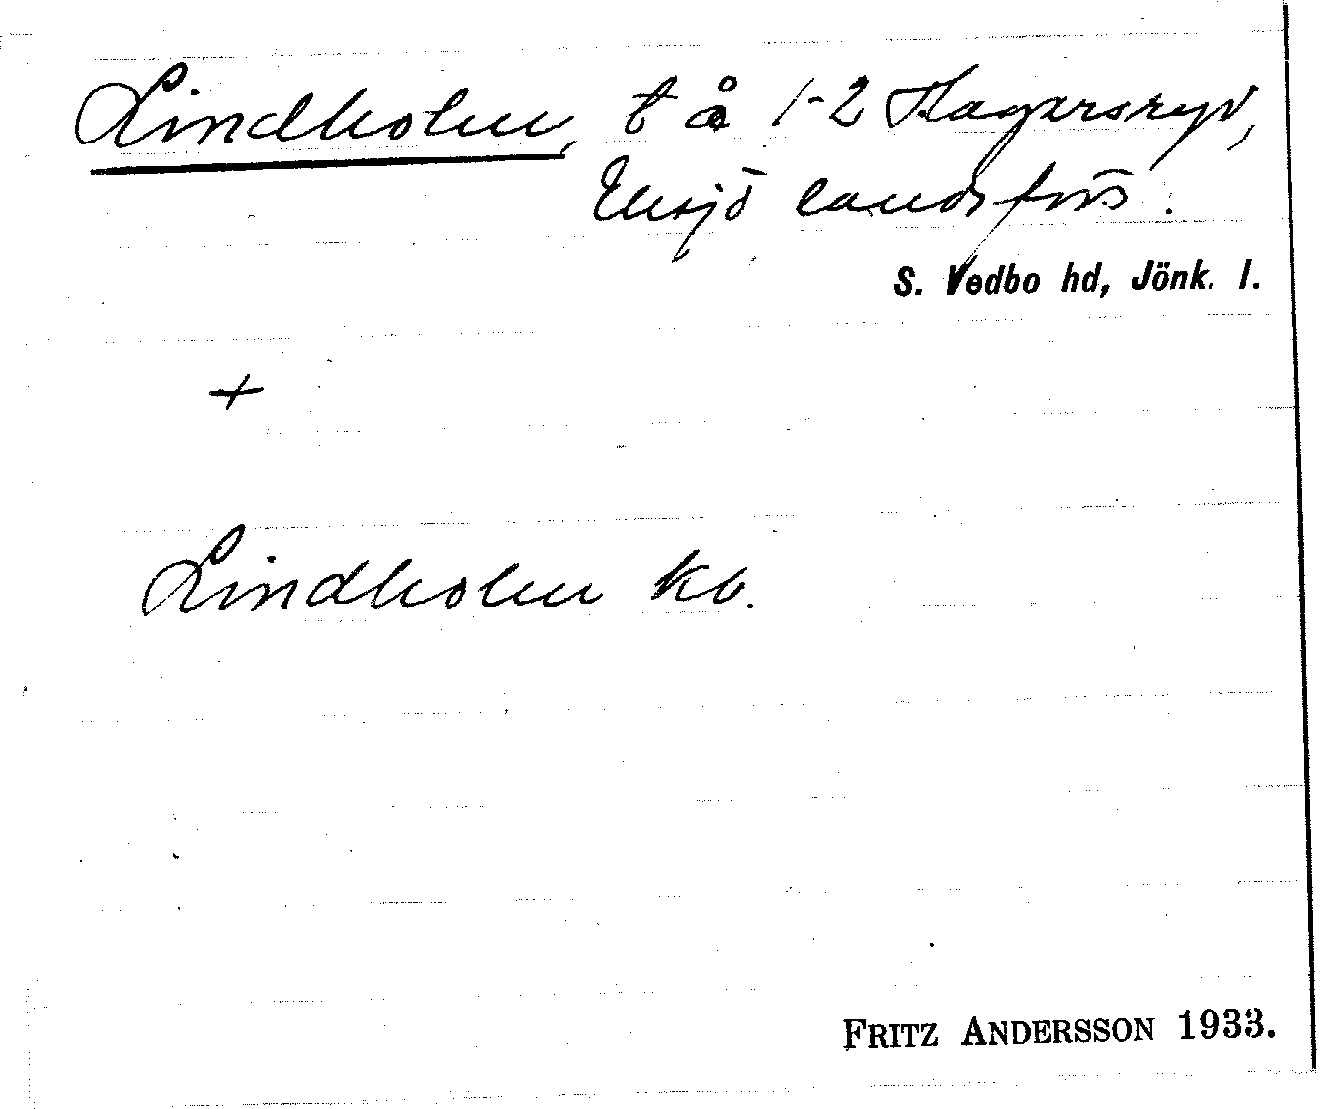 Lindholm, t å 1-2 Hagersryd,
Eksjö landsförs.
S. Vedbo hd, Jönk. l.
+
Lindholm kb.
FRITZ ANDERSSON 1933.